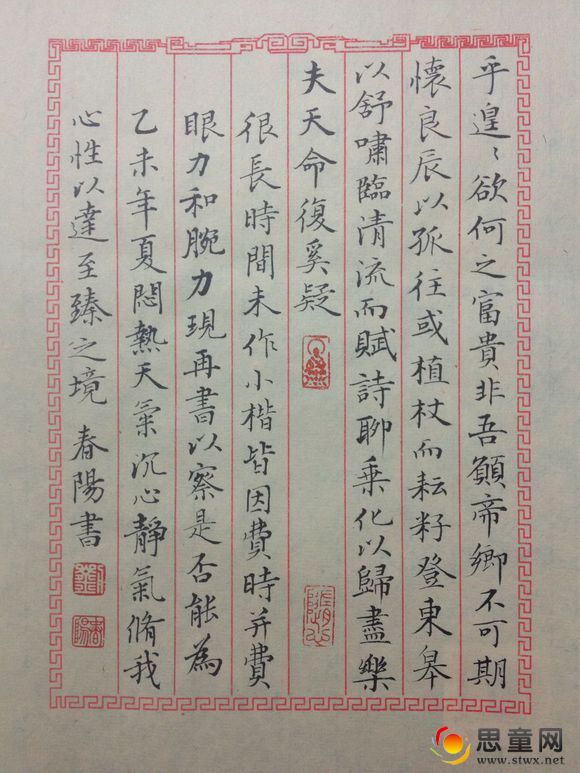 乎遑〻欲何之富貴非吾願帝鄉不可期
懷良辰以孤往或植杖而耘耔登東皋
以舒嘯臨清流而賦詩聊乗化以歸盡樂
夫天命復奚疑
很長時間未作小楷皆因費時并費
眼力和腕力現再書以察是否能為
乙未年夏悶熱天氣沉心靜氣脩我
心性以達至臻之境 春陽書
思童网
www.stwx.net